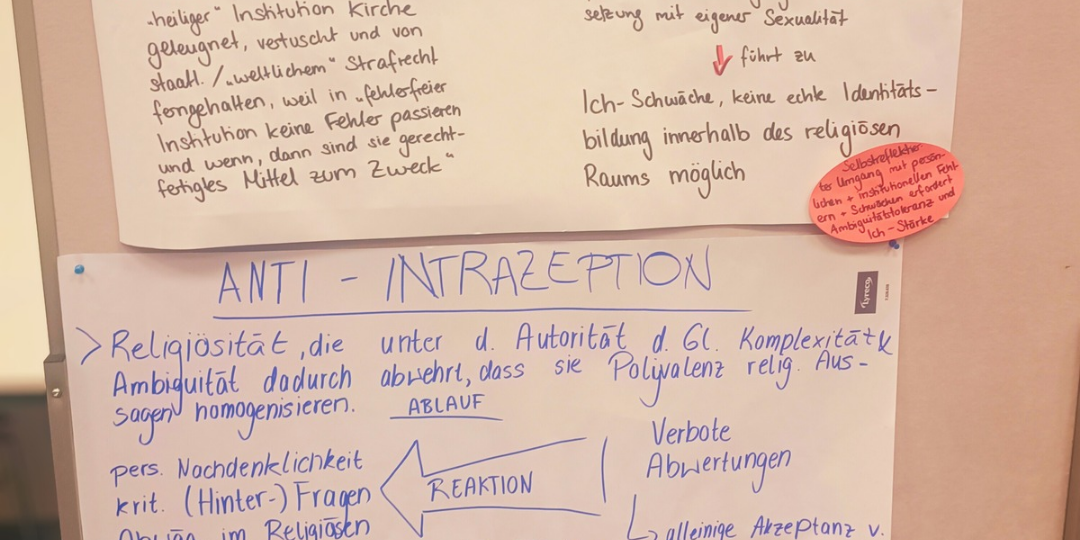 „heiliger" Institution Kirche
geleugnet, vertuscht und von
staatl. / „weltlichem" Strafrecht
ferngehalten, weil in „fehlerfreier
Institution keine Fehler passieren
und wenn, dann sind sie gerecht-
fertigtes Mittel zum Zweck"
setzung mit eigener Sexualität
führt zu
Ich-Schwäche, keine echte Identitäts-
bildung innerhalb des religiösen
Raums möglich
Selbstreflektier
ter Umgang mit persön-
lichen + institutionellen Fehl-
ern + Schwächen erfordert
Ambiguitätstoleranz und
Ich-Stärke
ANTI - INTRAZEPTION
Lyreco
> Religiösität, die unter d. Autorität d. Gl. Komplexität &
Ambiguität dadurch abwehrt, dass sie Polyvalenz relig. Aus-
sagen homogenisieren.
ABLAUF
pers. Nachdenklichkeit
krit. (Hinter-) Fragen
im Religiösen
REAKTION
Verbote
Abwertungen
alleinige Akzeptanz v.